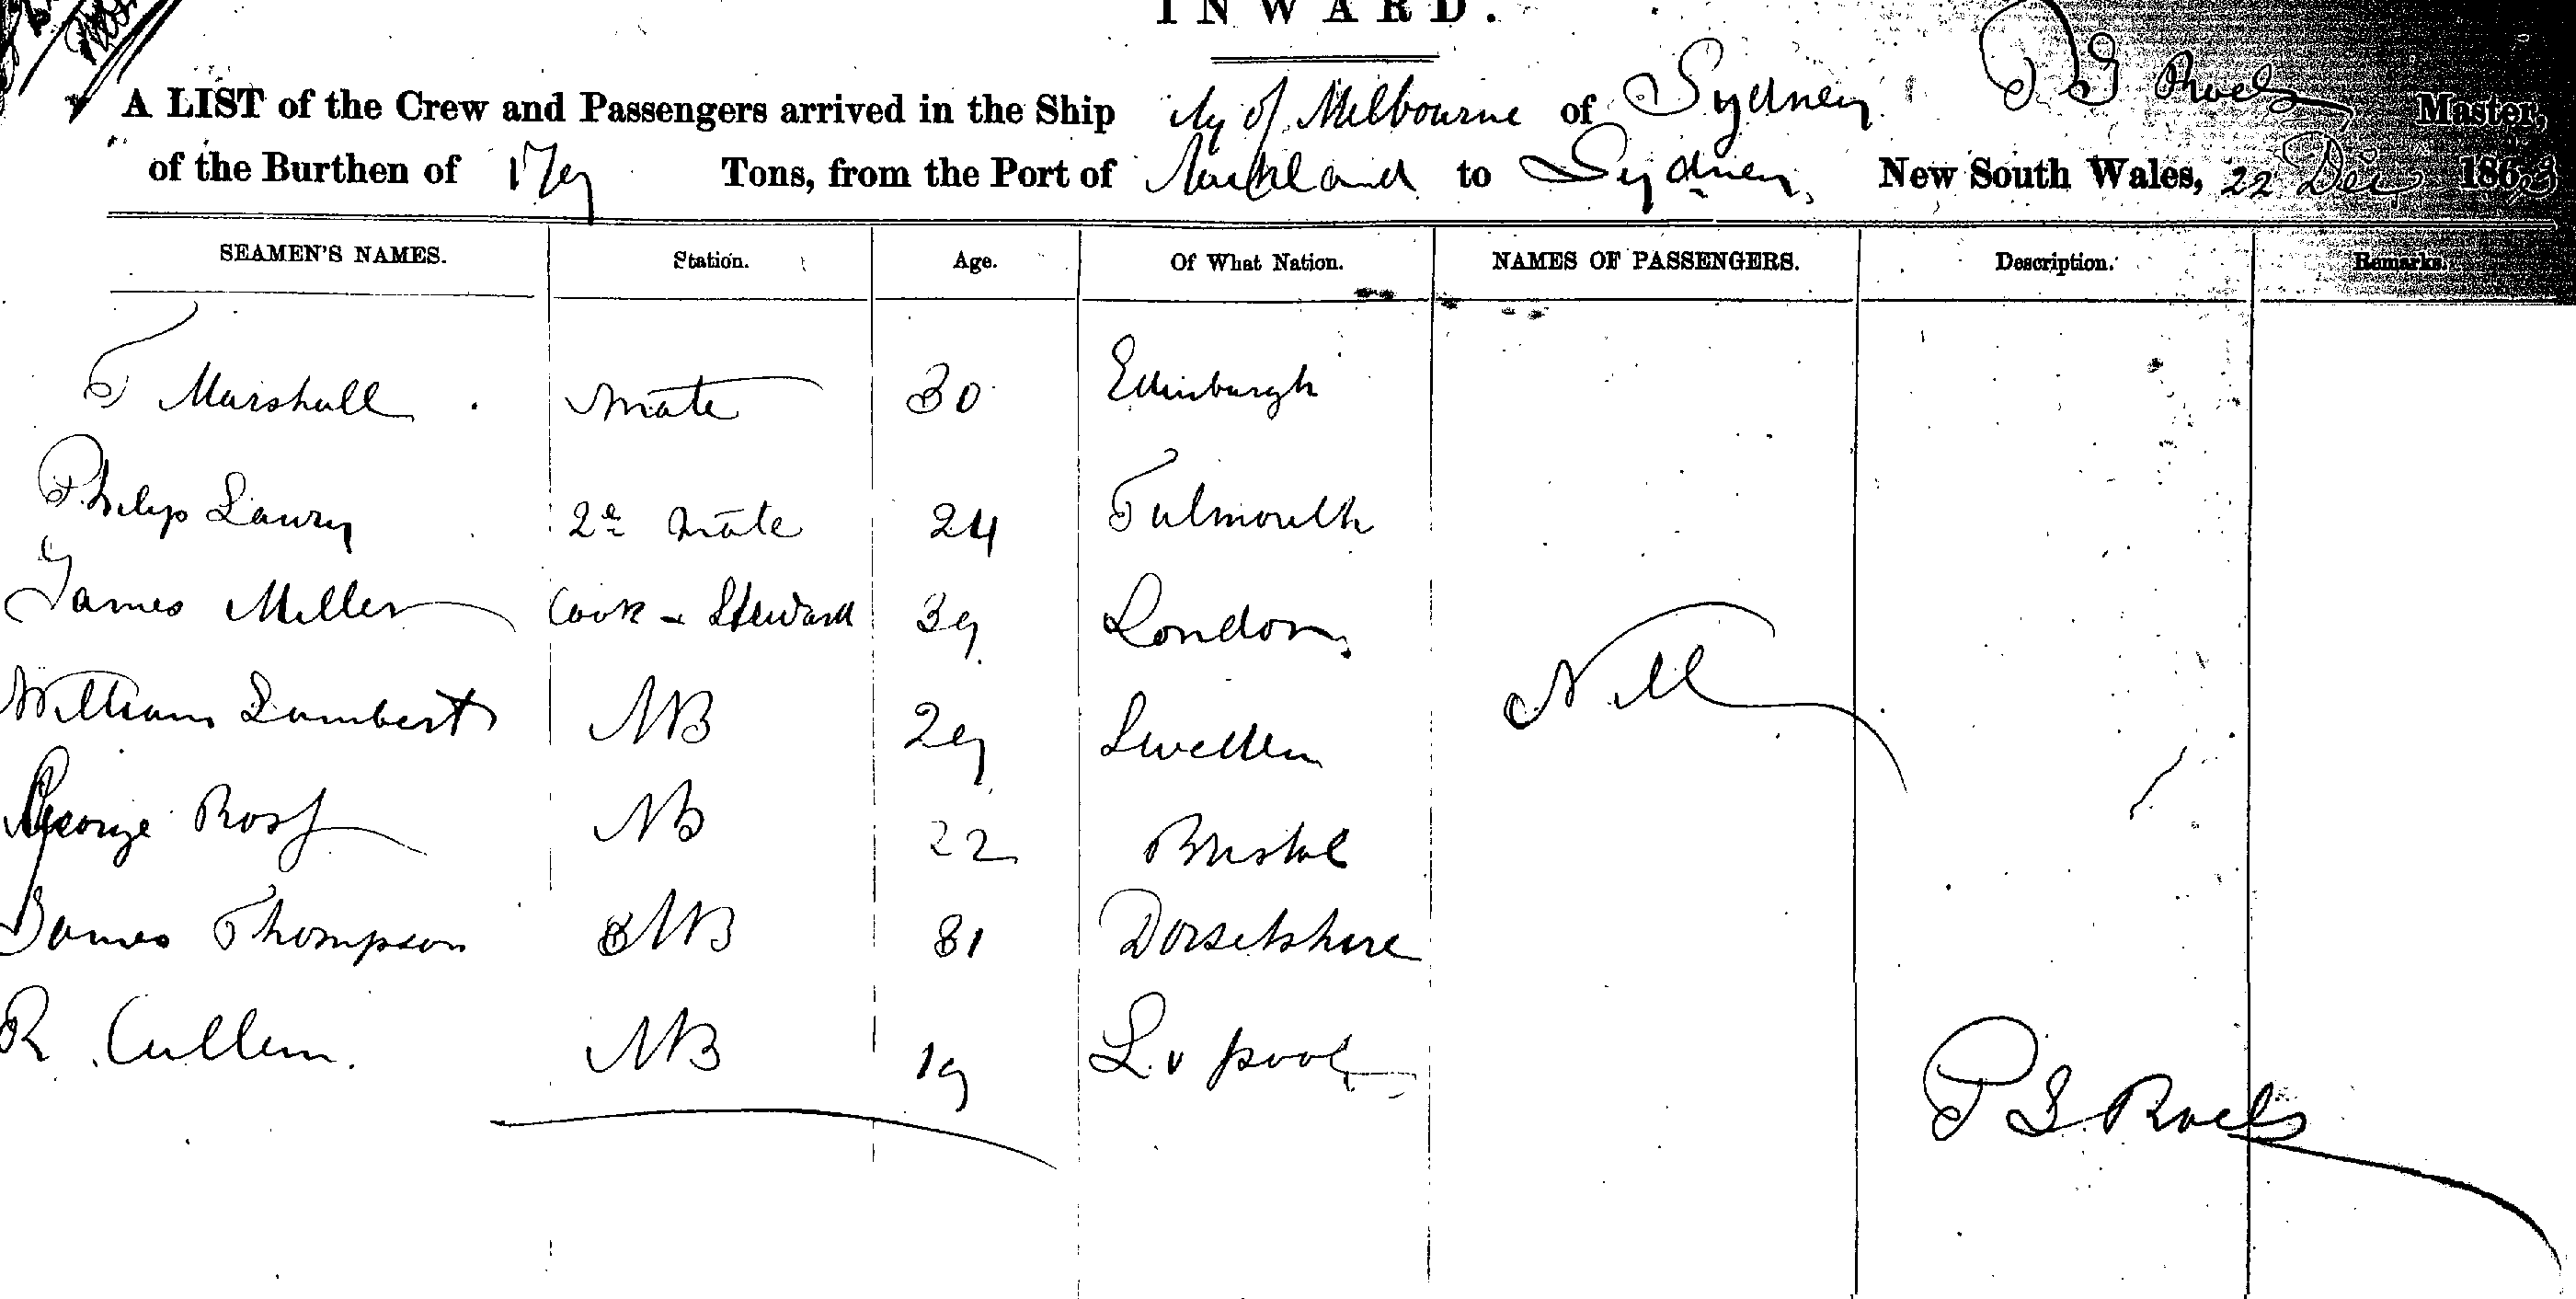 INWARD.
A LIST of the Crew and Passengers arrived in the Ship City of Melbourne of Sydney P S Master,
of the Burthen of 179 Tons, from the Port of Auckland to Sydney, New South Wales, 22 Dec 1863
SEAMEN'S NAMES. Station. Age. Of What Nation. NAMES OF PASSENGERS. Description. Remarks.
T Marshall mate 30 Edinburgh
Philip Lawry 2d mate 24 Falmouth
James Miller Cook & Steward 39 London
William Lambert AB 29 Sweden
George Ross AB 22 Bristol
James Thompson AB 31 Dorsetshire
R Cullen AB 19 L.v pool
Nill
P S